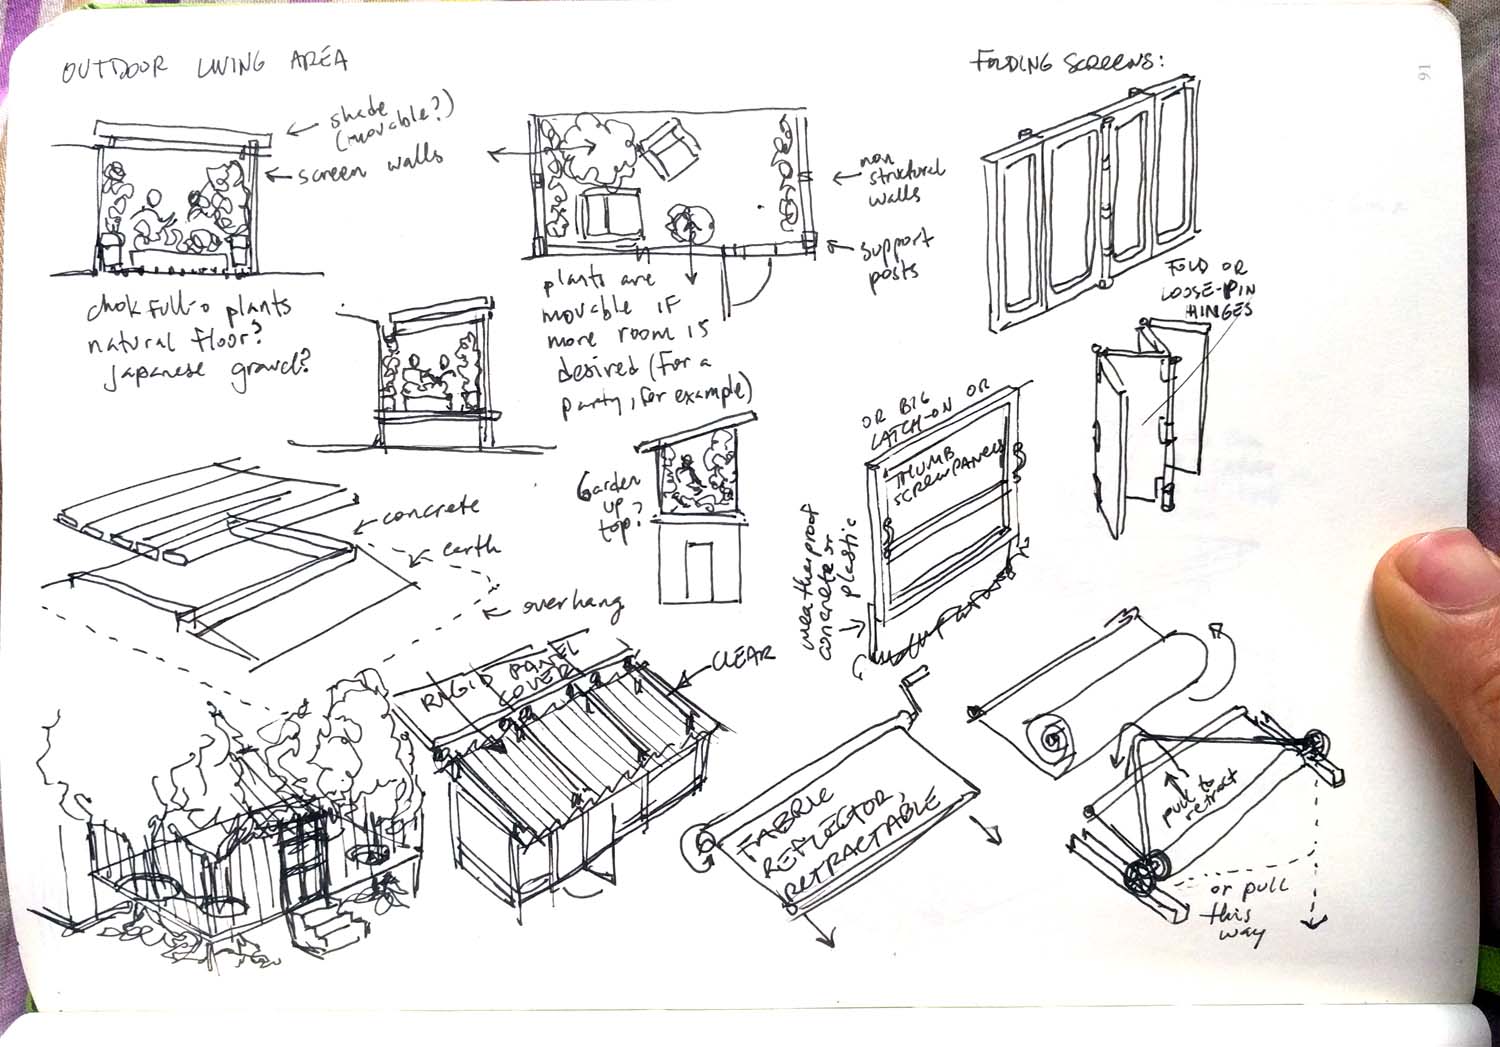 OUTDOOR LIVING AREA
shade
(movable?)
screen walls
chok full-o plants
natural floor?
Japanese gravel?
non
structural
walls
support
posts
plants are
movable if
more room is
desired (for a
party, for example)
FOLDING SCREENS:
FOLD OR
LOOSE-PIN
HINGES
OR BIG
LATCH-ON OR
THUMB
SCREW PANELS
weatherproof
concrete or
plastic
Garden
up
top?
concrete
earth
overhang
RIGID PANEL
COVER
CLEAR
FABRIC
REFLECTOR,
RETRACTABLE
pull to
retract
or pull
this
way
91